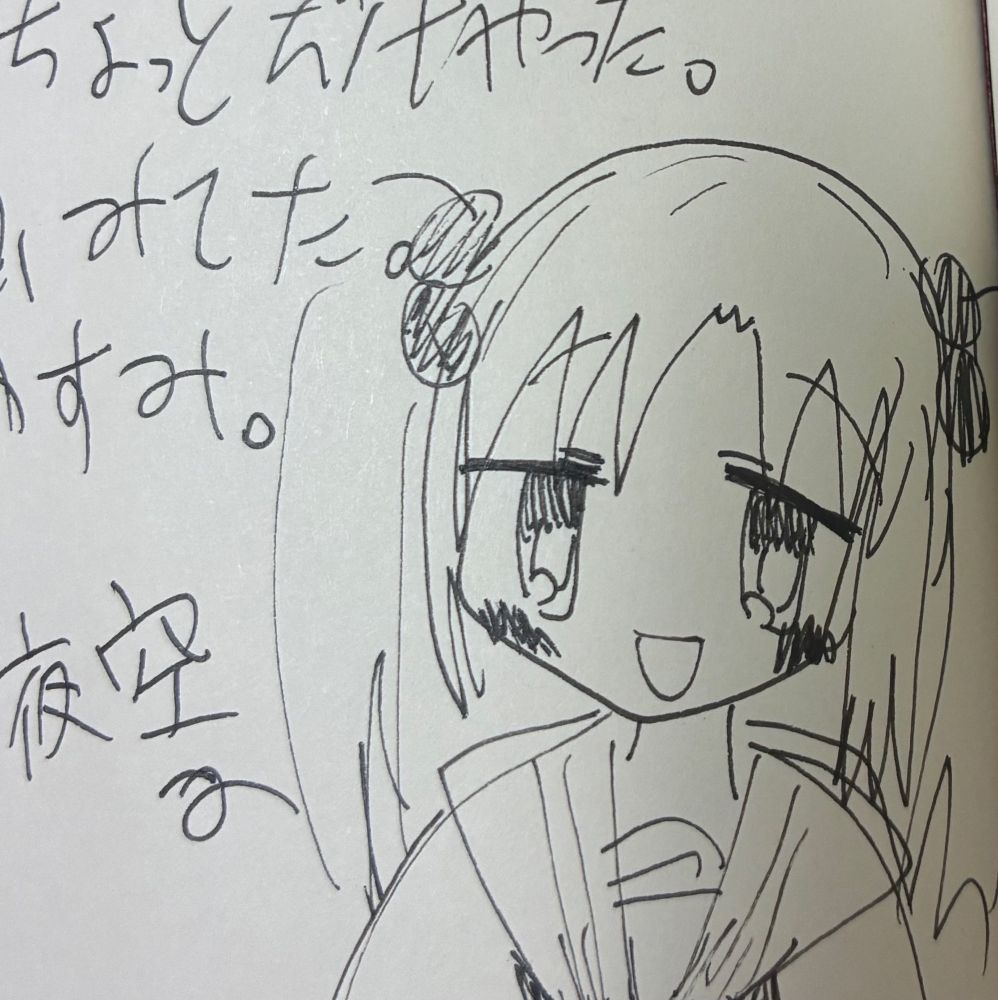 ちょっとだけやった。
みてたっ。
すみ。
夜空
る